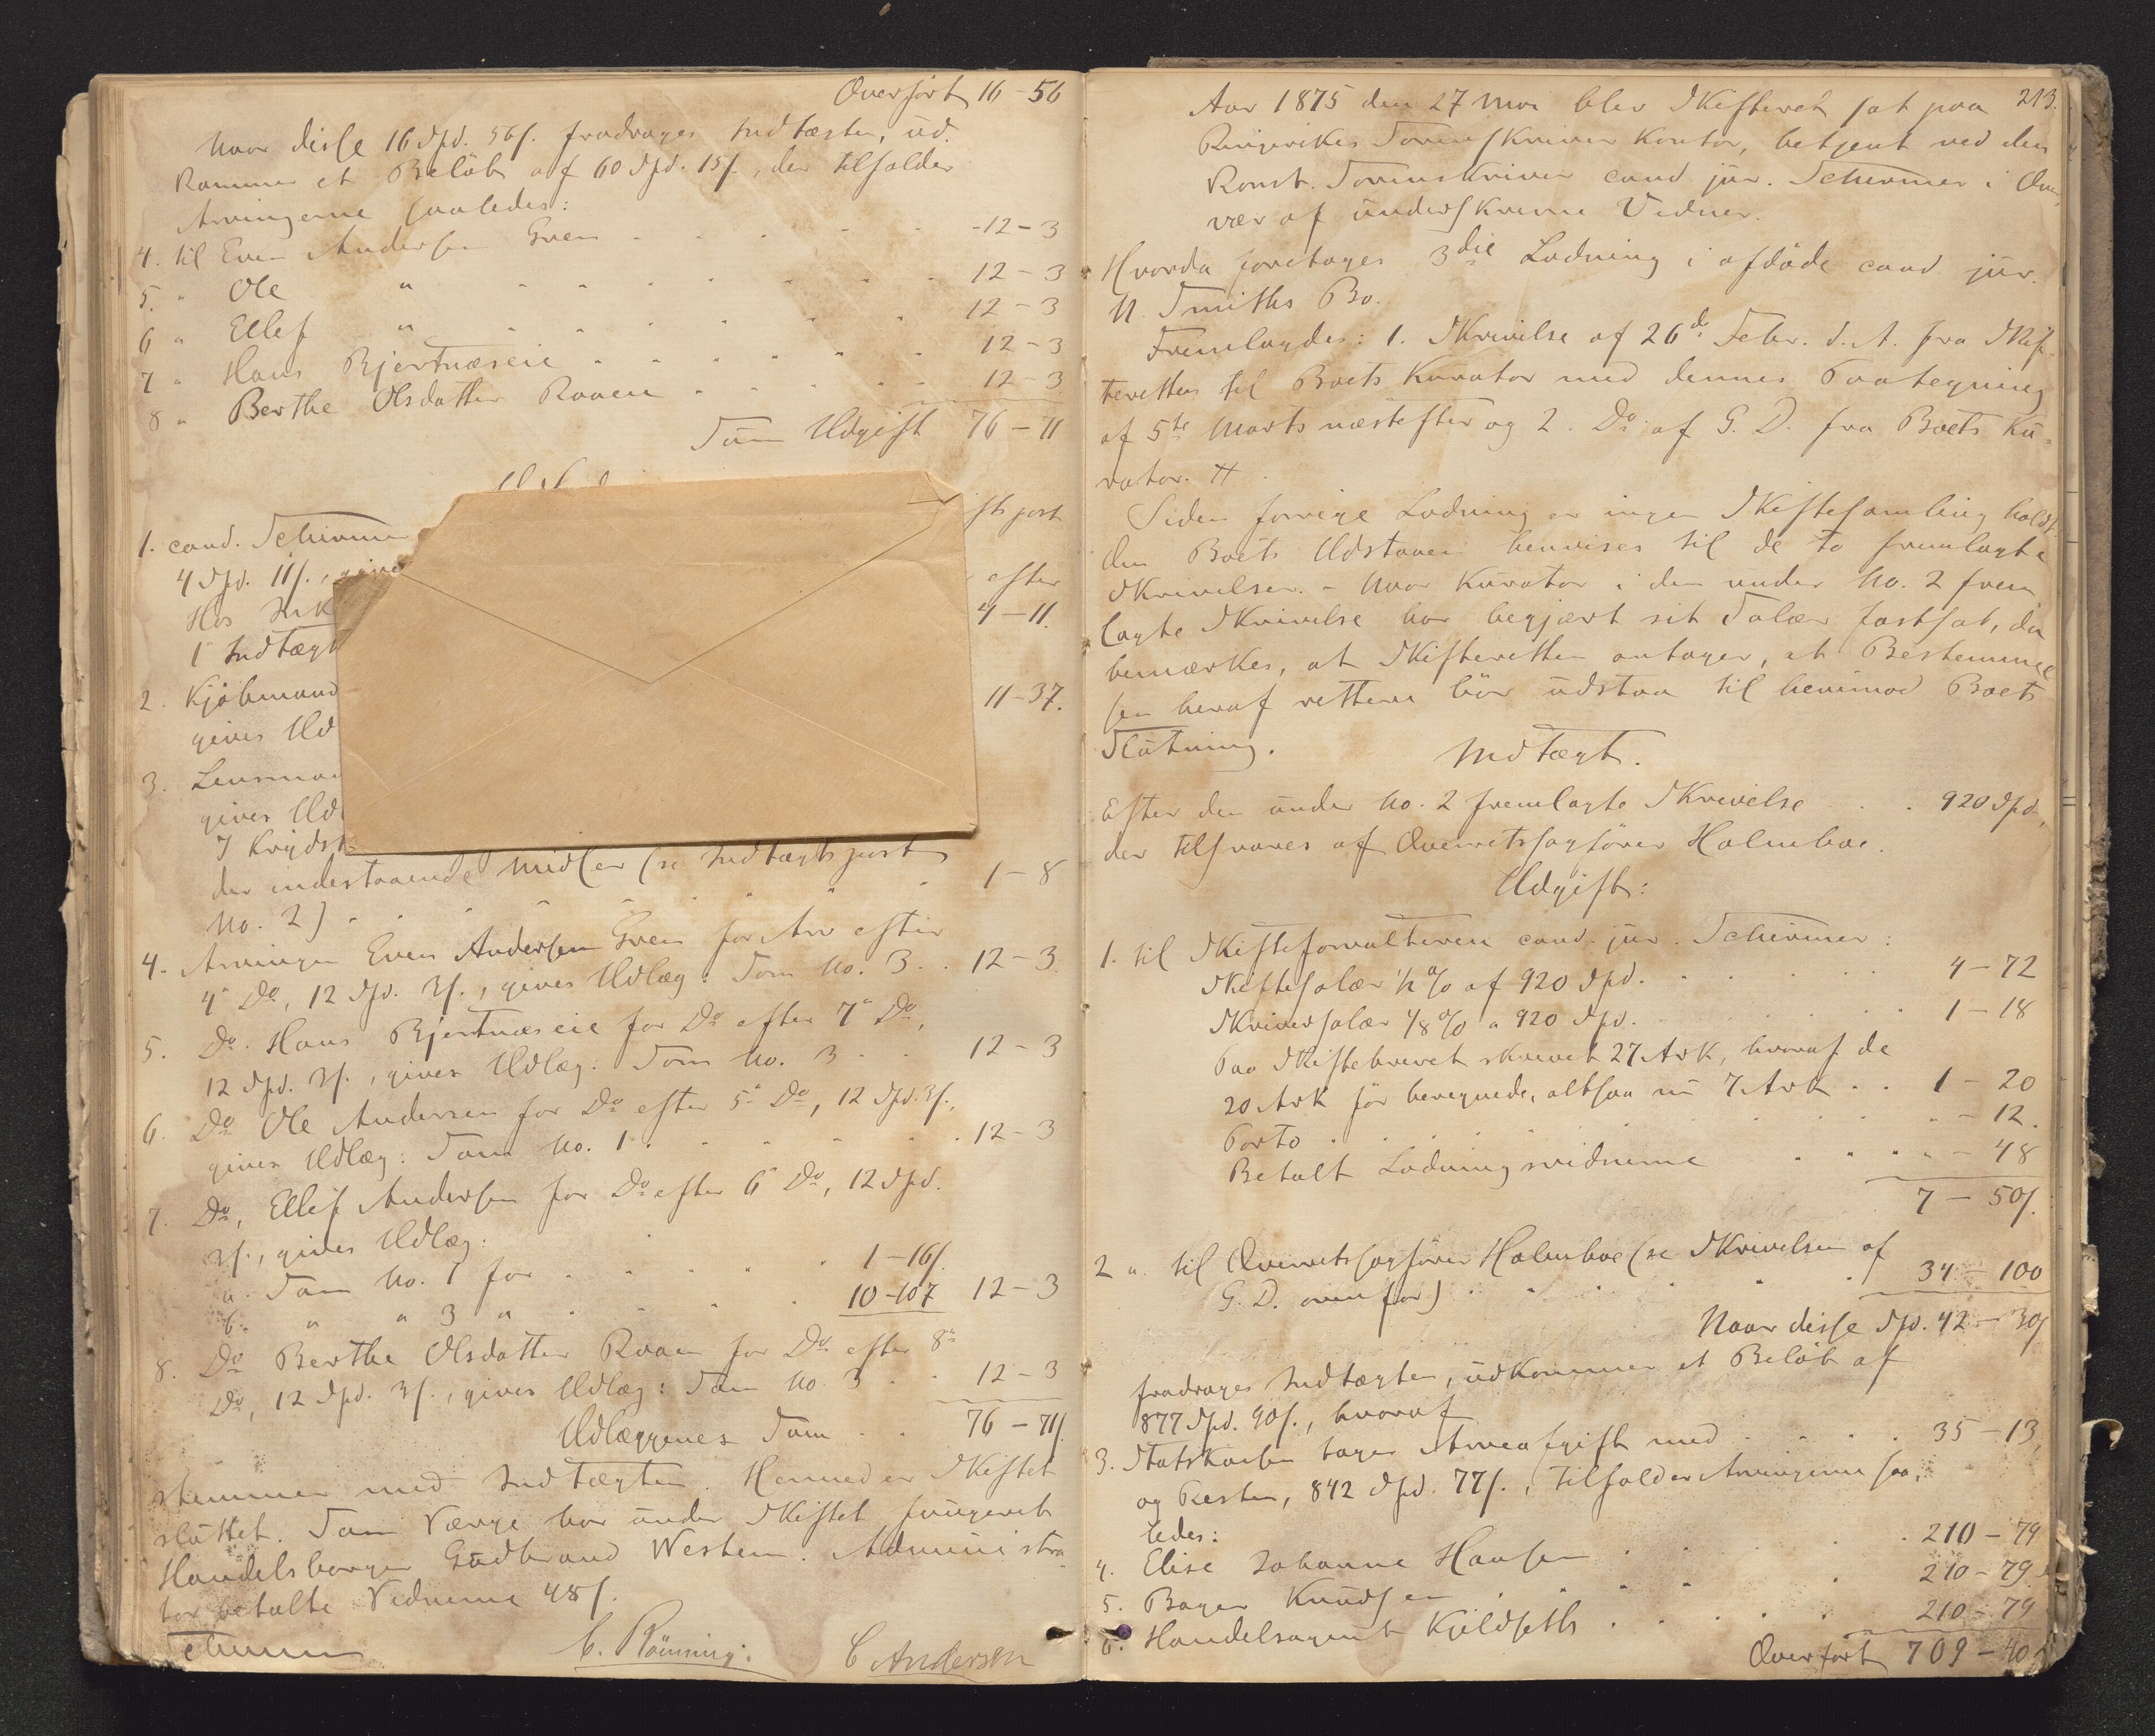 Overført 16-56
Naar disse 16 Spd. 56 s. fradrages Indtægten, ud-
kommer et Beløb af 60 Spd. 15 s., der tilfalder
Arvingerne saaledes:
4. til Even Andersen Gren . . . . . -12-3
5. " Ole " . . . . . . . 12-3
6 " Ellef " . . . . . . . 12-3
7 " Hans Bjertnæseie . . . . . . 12-3
8 " Berthe Olsdatter Raaen . . . . . 12-3
Sum Udgift 76-71
1. cand. Schirmer
4 Spd. 11 s., gives
efter
Hos Ink
4-11.
1 Indtægt
2. Kjøbmand
11-37.
gives Ud
3. Lensmand
gives Udl
der indestaaende Midler (se Indtægtspost
No. 2) . . . . . . . 1-8
4. Arvingen Even Andersen Gren for Arv efter
4" Do, 12 Spd. 3 s., gives Udlæg: Som No. 3. . 12-3
5. Do. Hans Bjertnæseie for Do efter 7" Do,
12 Spd. 3 s., gives Udlæg: Som No. 3 . . 12-3
6. Do Ole Andersen for Do efter 5" Do, 12 Spd. 3 s.,
gives Udlæg: Som No. 1 . . . . . . 12-3
7. Do, Ellef Andersen for Do efter 6" Do, 12 Spd.
3 s., gives Udlæg:
a. Som No. 1 for . . . . . 1-16 s.
b. " " 3 " . . . . 10-107 12-3
8. Do Berthe Olsdatter Raaen for Do efter 8"
Do, 12 Spd. 3 s., gives Udlæg: Som No. 3 . . 12-3
Udlæggenes Sum . . 76-71 s.
stemmer med Indtægten. Hermed er Skiftet
sluttet. Som Værge har under Skiftet fungeret
Handelsborger Gudbrand Western. Administra-
tor betalte Vidnerne 48 s.
Schirmer C. Rønning. C Andersen
213.
Aar 1875 den 27 Mai blev Skifteret sat paa
Ringerikes Sorenskriver Kontor, betjent ved den
Konst. Sorenskriver cand. jur. Schirmer i Over-
vær af underskrevne Vidner.
Hvorda foretages 3die Lodning i afdøde cand. jur.
N. Smiths Bo.
Fremlagdes: 1. Skrivelse af 26de Febr. d. A. fra Skif-
teretten til Boets Kurator med dennes Paategning
af 5te Marts næstefter og 2. Do. af G. D. fra Boets Ku-
rator. #
Siden forrige Lodning er ingen Skiftesamling holdt.
Om Boets Udstaaen henvises til de to fremlagte
Skrivelser. - Naar Kurator i den under No. 2 frem-
lagte Skrivelse har begjært sit Salær fastsat, da
bemærkes, at Skifteretten antager, at Bestemmel-
sen heraf rettere bør udstaa til henimod Boets
Slutning.
Indtægt.
Efter den under No. 2 fremlagte Skrivelse . . 920 Spd.,
der tilsvares af Overretssagfører Holmboe.
Udgift:
1. til Skifteforvalteren cand. jur. Schirmer:
Skiftesalær 1/2 % af 920 Spd. . . . . . 4-72
Skriversalær 1/8 % a 920 Spd. . . . . . 1-18
Paa Skiftebrevet skrevet 27 Ark, hvoraf de
20 Ark før beregnede, altsaa nu 7 Ark . . 1-20
Porto . . . . . . . . . " - 12.
Betalt Lodningsvidnerne . . . " - 48
7-50 s.
2 " til Overretssagfører Holmboe (se Skrivelsen af
G. D. ovenfor) . . . . . . 34-100
Naar disse Spd. 42-30 s
fradrages Indtægten, udkommer et Beløb af
877 Spd. 90 s., hvoraf
3. Statskassen tager Arveafgift med . . . . 35-13,
og Resten, 842 Spd. 77 s., tilfalder Arvingerne saa-
ledes:
4. Elise Johanne Hansen . . . . 210-79
5. Bager Knudsen . . . . . 210-79
6. Handelsagent Kjeldseth . . . . . 210-79
Overført 709-40 s